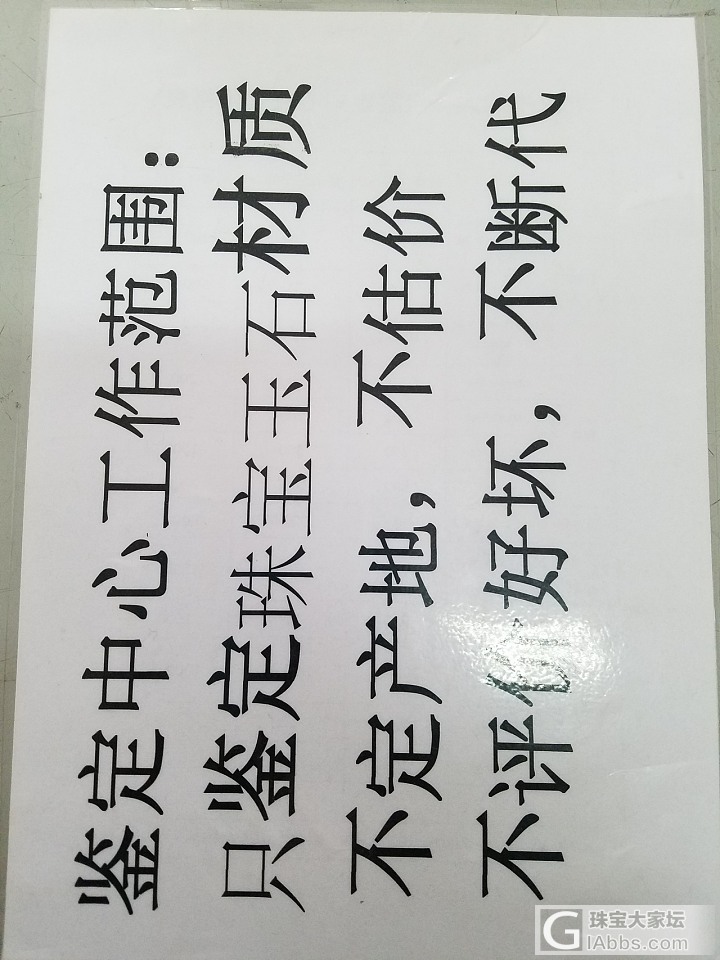 鉴定中心工作范围：
只鉴定珠宝玉石材质
不定产地，不估价
不评价好坏，不断代
珠宝大家坛
iAbbs.com